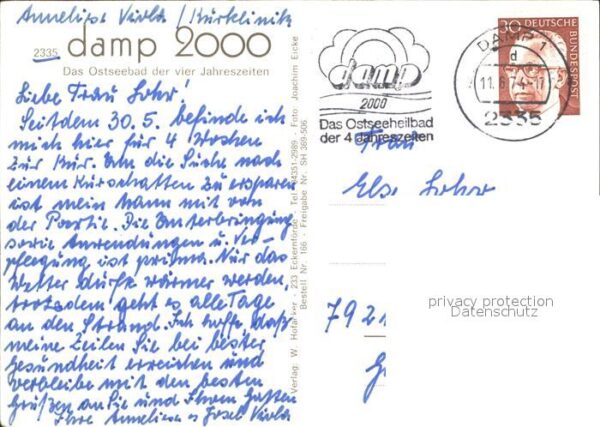 Anneliese Viola / Kurklinik
2335 damp 2000
Das Ostseebad der vier Jahreszeiten
Liebe Frau Lohr!
Seitdem 30. 5. befinde ich
mich hier für 4 Wochen
zur Kur. Um die Suche nach
einem Kurschatten zu ersparen
ist mein Mann mit von
der Partie. Die Unterbringung
sowie Anwendungen u. Ver-
pflegung ist prima. Nur das
Wetter dürfte wärmer werden
trotzdem geht es alle Tage
an den Strand. Ich hoffe, daß
meine Zeilen Sie bei bester
Gesundheit erreichen und
verbleibe mit den besten
Grüßen an Sie und Ihren Gatten
Ihre Anneliese u Josef Viola
Verlag: W. Hofacker · 233 Eckernförde · Tel. 04351-2989 · Foto: Joachim Eicke
Bestell Nr. 166 · Freigabe Nr. SH 369-506
damp
2000
Das Ostseeheilbad
der 4 Jahreszeiten
DAMP 1
d
11. 6. 74-17
2335
30 DEUTSCHE
BUNDESPOST
Frau
Else Lohr
7921
privacy protection
Datenschutz